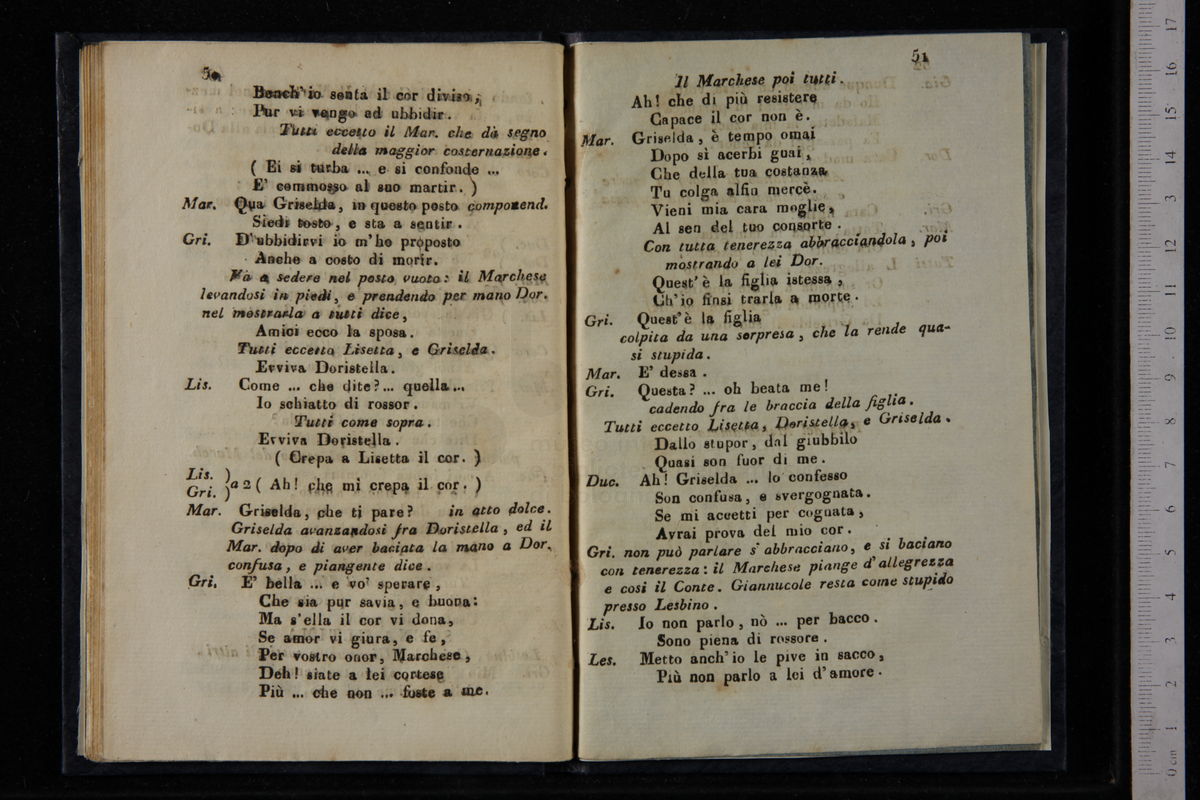 50
Bench'io senta il cor diviso,
Pur vi vengo ad ubbidir.
Tutti eccetto il Mar. che dà segno
della maggior costernazione.
( Ei si turba ... e si confonde ...
E' commosso al suo martir. )
Mar. Qua Griselda, in questo posto componend.
Siedi tosto, e sta a sentir.
Gri. D'ubbidirvi io m'ho proposto
Anche a costo di morir.
Và a sedere nel posto vuoto: il Marchese
levandosi in piedi, e prendendo per mano Dor.
nel mostrarla a tutti dice,
Amici ecco la sposa.
Tutti eccetto Lisetta, e Griselda.
Evviva Doristella.
Lis. Come ... che dite?... quella...
Io schiatto di rossor.
Tutti come sopra.
Evviva Doristella.
( Crepa a Lisetta il cor. )
Lis. )
Gri. ) a 2 ( Ah! che mi crepa il cor. )
Mar. Griselda, che ti pare? in atto dolce.
Griselda avanzandosi fra Doristella, ed il
Mar. dopo di aver baciata la mano a Dor.
confusa, e piangente dice.
Gri. E' bella ... e vo' sperare,
Che sia pur savia, e buona:
Ma s'ella il cor vi dona,
Se amor vi giura, e fe,
Per vostro onor, Marchese,
Deh! siate a lei cortese
Più ... che non ... foste a me.
51
Il Marchese poi tutti.
Ah! che di più resistere
Capace il cor non è.
Mar. Griselda, è tempo omai
Dopo sì acerbi guai,
Che della tua costanza
Tu colga alfin mercè.
Vieni mia cara moglie,
Al sen del tuo consorte.
Con tutta tenerezza abbracciandola, poi
mostrando a lei Dor.
Quest' è la figlia istessa,
Ch'io finsi trarla a morte.
Gri. Quest' è la figlia
colpita da una sorpresa, che la rende qua-
si stupida.
Mar. E' dessa.
Gri. Questa? ... oh beata me!
cadendo fra le braccia della figlia.
Tutti eccetto Lisetta, Doristella, e Griselda.
Dallo stupor, dal giubbilo
Quasi son fuor di me.
Duc. Ah! Griselda ... lo confesso
Son confusa, e svergognata.
Se mi accetti per cognata,
Avrai prova del mio cor.
Gri. non può parlare s' abbracciano, e si baciano
con tenerezza: il Marchese piange d'allegrezza
e così il Conte. Giannucole resta come stupido
presso Lesbino.
Lis. Io non parlo, nò ... per bacco.
Sono piena di rossore.
Les. Metto anch'io le pive in sacco,
Più non parlo a lei d'amore.
0 cm 1 2 3 4 5 6 7 8 9 10 11 12 13 14 15 16 17